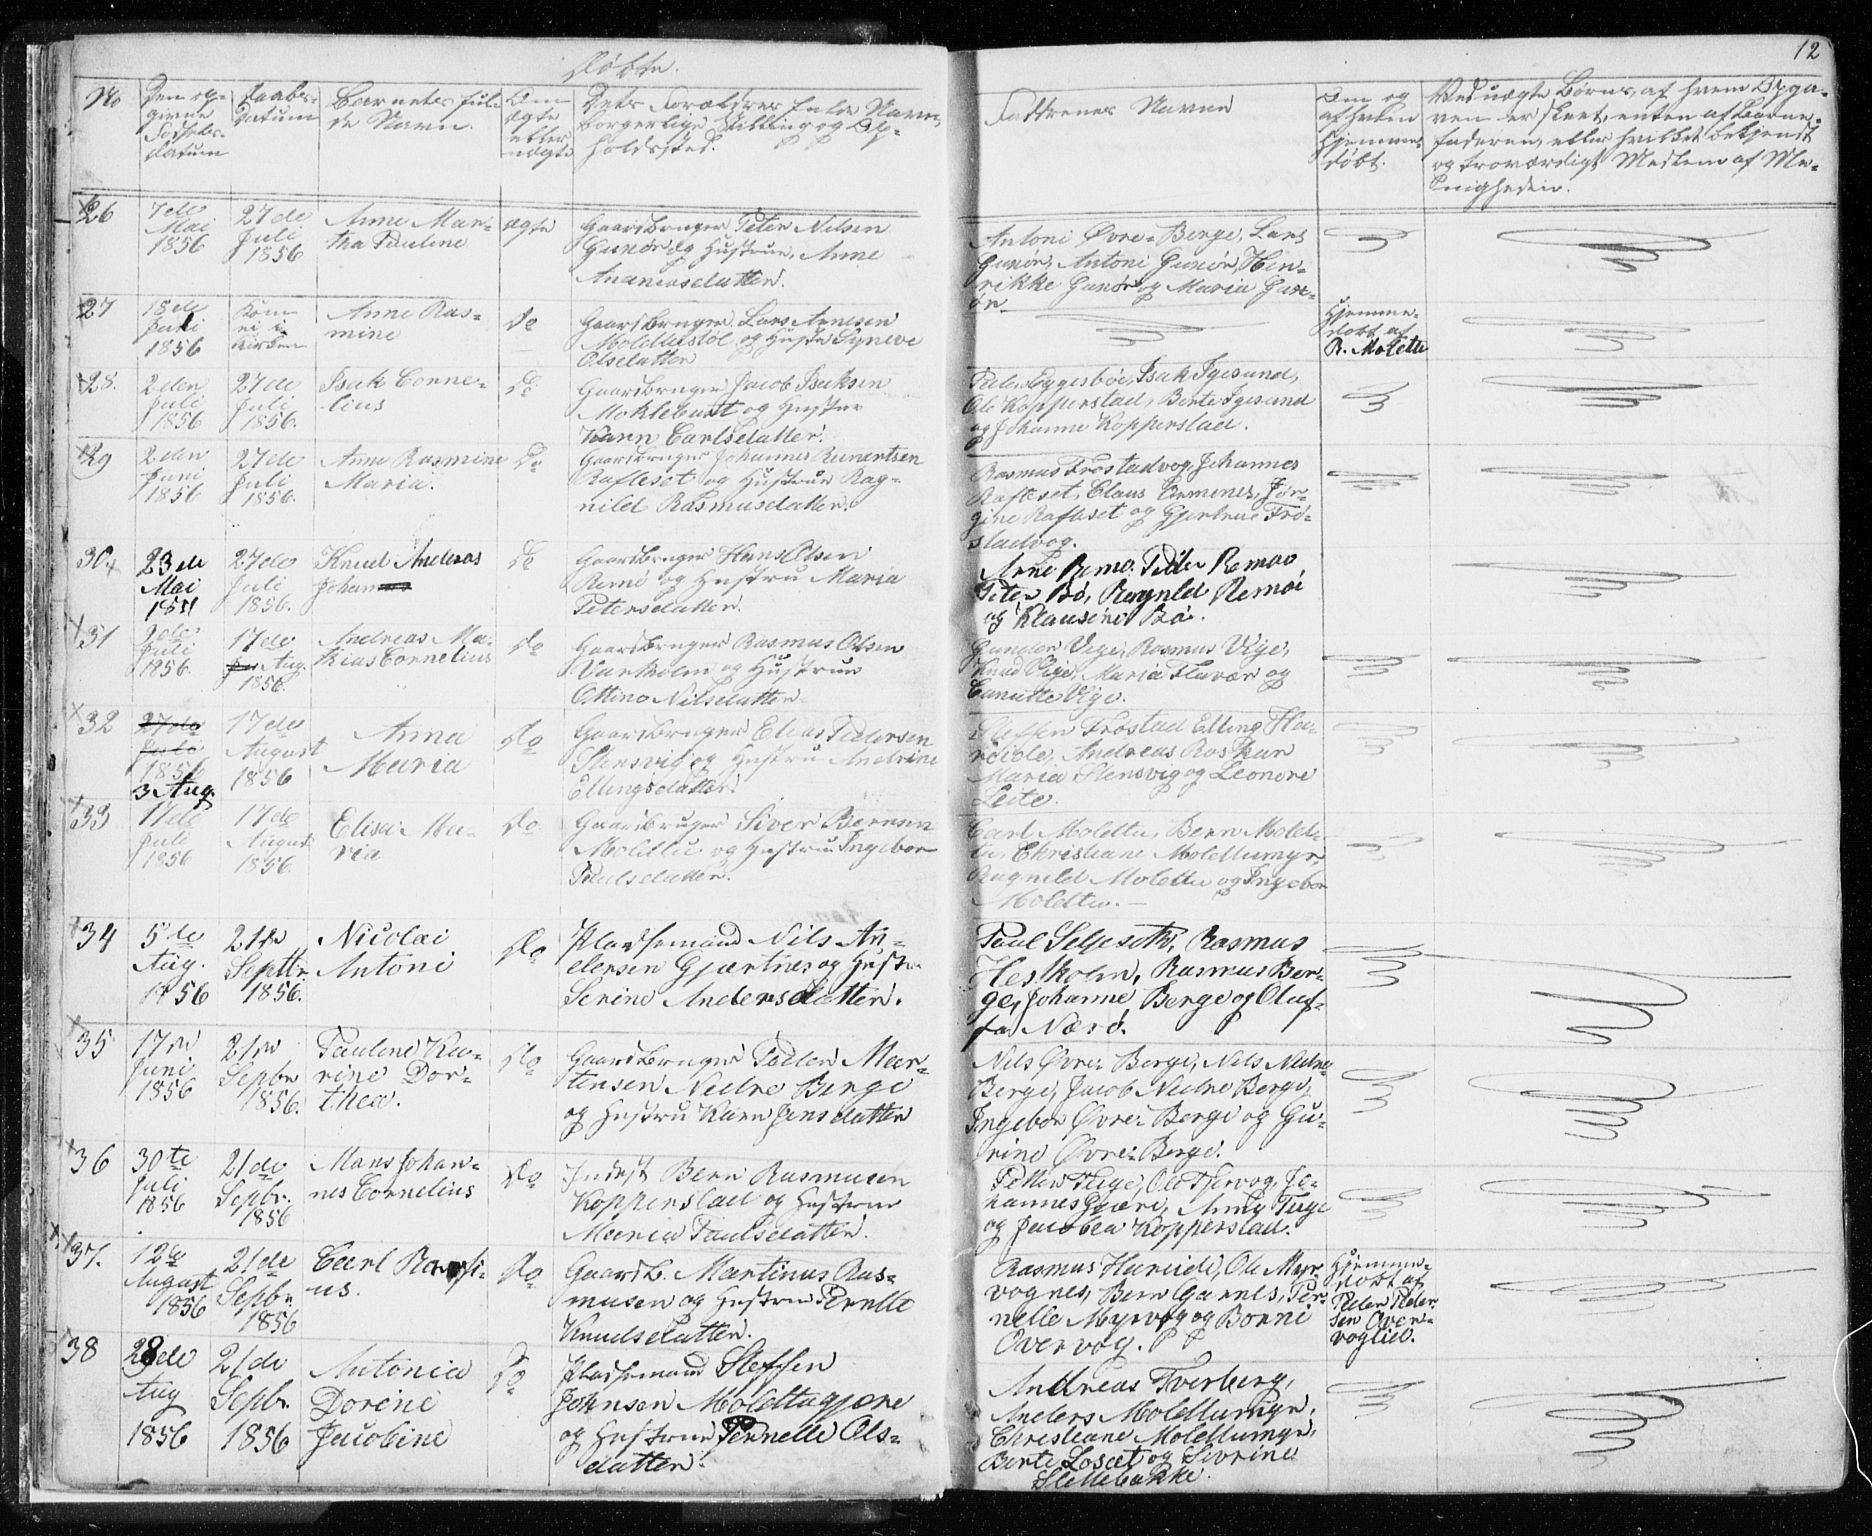 12
Døbte.
No
Den op-
givne
Fødsels-
datum
Daabs-
datum
Barnets ful-
de Navn.
Om
ægte
eller
uægte
Dets Forældres fulde Navn,
borgerlige Stilling og Op-
holdssted.
Faddrenes Navne
Om og
af hvem
hjemme-
døbt.
Ved uægte Børn, af hvem Opga-
ven er skeet, enten af Barne-
faderen, eller hvilket bekjendt
og troværdigt Medlem af Me-
nigheden.
26
7de
Mai
1856
27de
Juli
1856
Anne Mar-
tha Pauline
ægte
Gaardbruger Peter Nilsen
Gurskø og Hustrue Anne
Ananiasdatter.
Antoni Øvre-Berge, Lars
Antoni
Hen-
rikke og Maria
27
18de
Juni
1856
Kom
ei i
Kirken
Anne Ras-
mine
do
Gaardbruger Lars Arnesen
Moldtustøl og Hustr Syneve
Olsdatter
Hjemme-
døbt af
R. Moldtu
28.
2den
Juli
1856
27de
Juli
1856.
Isak Corne-
lius
do
Gaardbruger Jacob Isaksen
Moklebust og Hustrue
Karn Carlsdatter.
Peder Eggesbøe, Isak Igesund,
Ole Kopperstad, Berte Igesund
og Johanne Kopperstad.
29
2den
Juni
1856
27de
Juli
1856.
Anne Rasmine
Maria.
do
Gaardbruger Johannes Runertsen
Rafteset og Hustrue Rag-
nild Rasmusdatter.
Rasmus Frøstadvog, Johannes
Rafteset, Claus Remenes, Jør-
gine Rafteset og Gjertrue Frø-
stadvog.
30.
23de
Mai
1856
27de
Juli
1856.
Knud Andreas
Johan
do
Gaardbruger Hans Olsen
Remø og Hustru Maria
Petersdatter.
Arne Remø. Peder Remøe
Peter Bø, Ragnild Remøe
og Klausine Bø.
31
2den
Juli
1856.
17de
Aug.
1856.
Andreas Ma-
thias Cornelius
do
Gaardbruger Rasmus Olsen
Vartholm og Hustrue
Ottine Nilsdatter.
Gunder Vige, Rasmus Vige,
Knud Vige, Maria Flavær og
Canutte Vige.
32
27de
Juli
1856
3 Aug.
17de
August
1856
Anna
Maria
do
Gaardbruger Elias Pedersen
Stensvig og Hustru Andrine
Ellingsdatter.
Steffen Frøstad Elling Ha-
reide, Andreas Roskar
Maria Stensvig og Leonore
Leite.
33
17de
Juli
1856
17de
August
1856
Elisa Ma-
ria
do
Gaardbruger Siver Bernsen
Moldtu og Hustru Ingebor
Paulsdatter.
Carl Moldtu, Bern Mold-
tu, Christiane Moldtumyr,
Ragnild Moldtu og Ingebor
Moldtu.
34
5de
Aug.
1856
21de
Septbr
1856.
Nicolai
Antoni
do
Pladsemand Nils An-
dersen Gjærtnes og Hustr
Serine Andersdatter.
Paul Seljeseth, Rasmus
Hestholm, Rasmus Ber-
ge, Johanne Berge og Oluf-
fa Nærø.
35
17de
Juni
1856
21de
Sepbr
1856.
Pauline Ka-
rine Dor-
thea.
do
Gaardbruger Peder Mar-
tensen Nedre Berge
og Hustru Karn Jensdatter
Nils Øvre-Berge, Nils Nedre
Berge, Jacob Nedre Berge,
Ingebor Øvre-Berge og Gu-
rine Øvre-Berge.
36
30te
Juli
1856
21de
Sepbr.
1856
Mans Johan-
nes Cornelius
do
Inderst Bern Rasmusen
Kopperstad og Hustrue
Maria Paulsdatter.
Petter Teige, Ole Tjervog, Jo-
hannes Gjære, Anne Teige
og Jacobea Kopperstad.
37.
12te
August
1856
21de
Sepbr.
1856
Carl Rasmi-
us.
do
Gaardb. Martinus Ras-
musen og Hustrue Pernelle
Knudsdatter.
Rasmus Hareide, Ole Myr
vognes, Bern Garnes, Per-
nelle Myrvog og Bonni
Overvog.
Hjemme-
døbt af
Peder Peder-
sen Over-
voglid.
38
28de
Aug
1856
21de
Sepbr
1856
Antonie
Dorine
Jacobine
do
Pladsemand Steffen
Johnsen Moldtugjære
og Hustrue Pernelle Ols-
datter.
Andreas Tverberg,
Anders Moldtumyr,
Christiane Moldtumyr,
Berte Loset og Sivrine
Slettebakke.